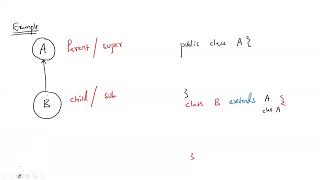 Example
A Parent / super public class A {
}
B child / sub class B extends A {
class A
}